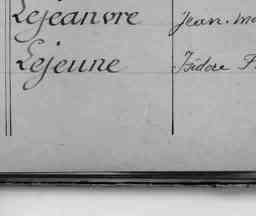 Lejeanvre Jean. Ma
Lejeune Isidore F.